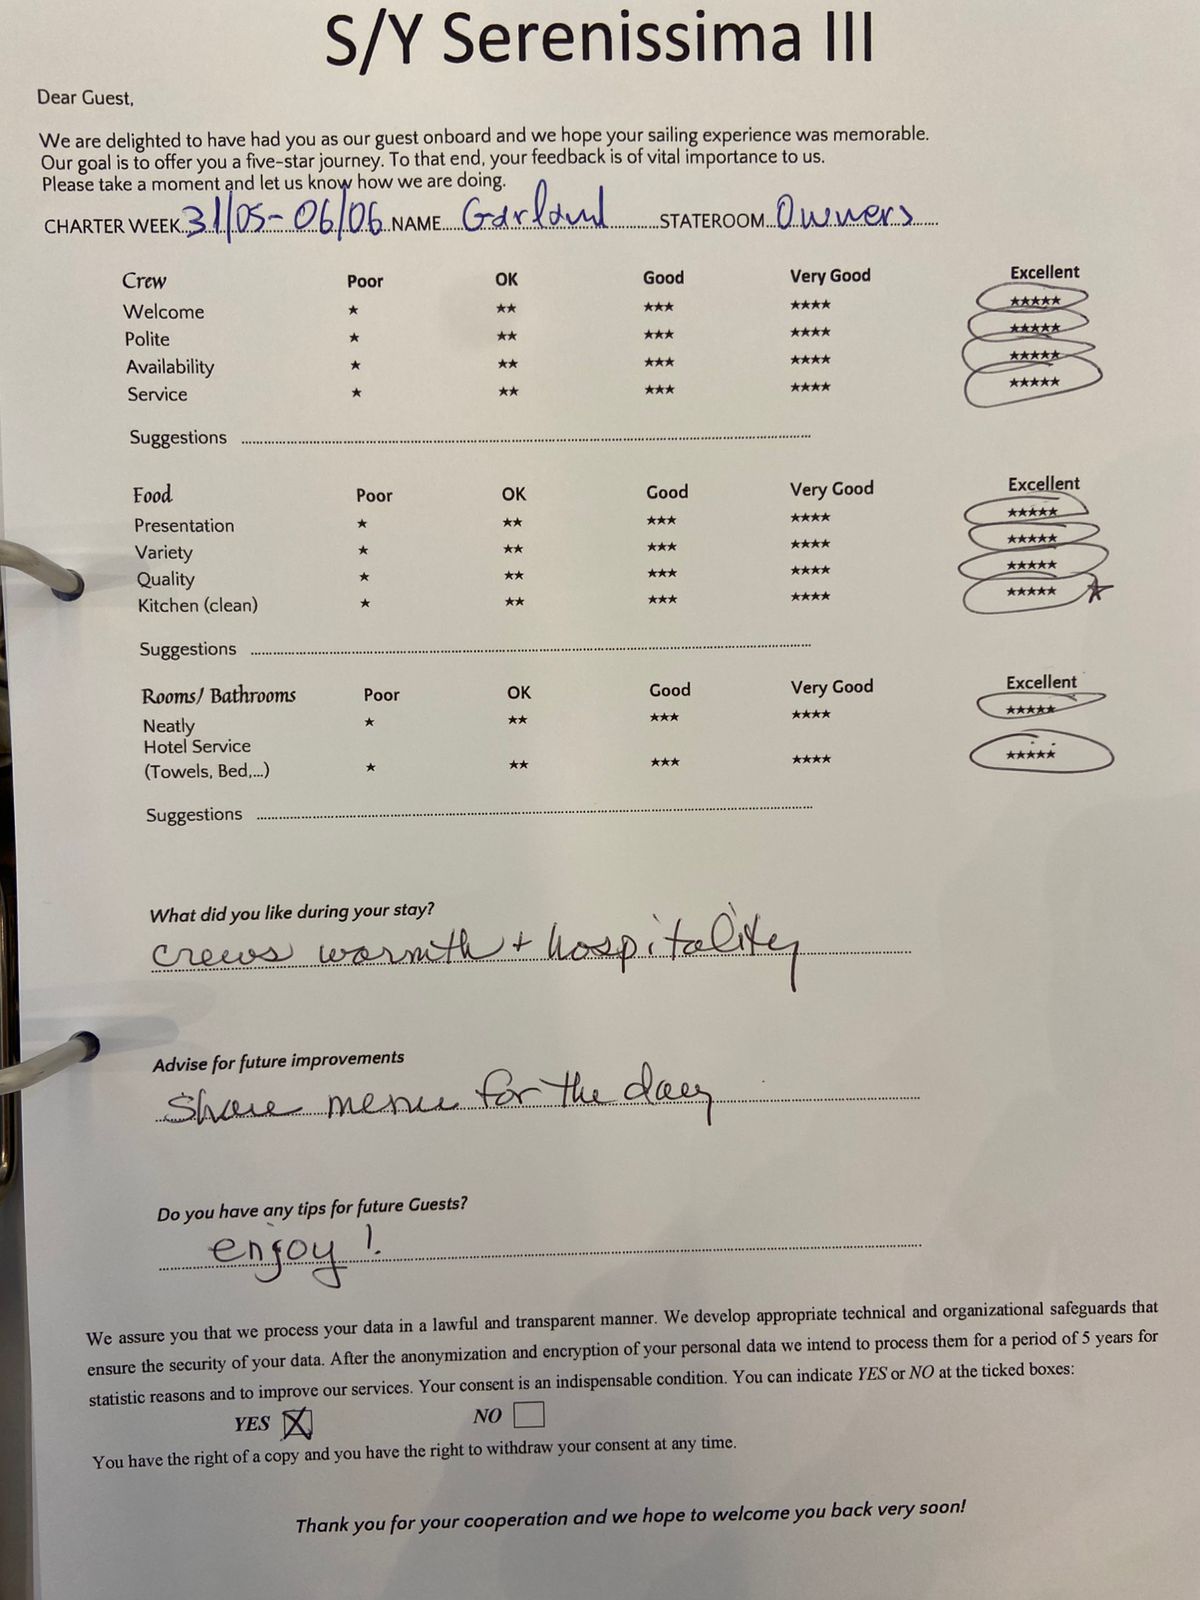 S/Y Serenissima III
Dear Guest,
We are delighted to have had you as our guest onboard and we hope your sailing experience was memorable.
Our goal is to offer you a five-star journey. To that end, your feedback is of vital importance to us.
Please take a moment and let us know how we are doing.
CHARTER WEEK 31/05-06/06 NAME Garland STATEROOM Owners
Crew Poor OK Good Very Good Excellent
Welcome ★ ★★ ★★★ ★★★★ ★★★★★
Polite ★ ★★ ★★★ ★★★★ ★★★★★
Availability ★ ★★ ★★★ ★★★★ ★★★★★
Service ★ ★★ ★★★ ★★★★ ★★★★★
Suggestions
Food Poor OK Good Very Good Excellent
Presentation ★ ★★ ★★★ ★★★★ ★★★★★
Variety ★ ★★ ★★★ ★★★★ ★★★★★
Quality ★ ★★ ★★★ ★★★★ ★★★★★
Kitchen (clean) ★ ★★ ★★★ ★★★★ ★★★★★ ★
Suggestions
Rooms/ Bathrooms Poor OK Good Very Good Excellent
Neatly ★ ★★ ★★★ ★★★★ ★★★★★
Hotel Service
(Towels, Bed,...) ★ ★★ ★★★ ★★★★ ★★★★★
Suggestions
What did you like during your stay?
crews warmth + hospitality
Advise for future improvements
Share menu for the day
Do you have any tips for future Guests?
enjoy!
We assure you that we process your data in a lawful and transparent manner. We develop appropriate technical and organizational safeguards that
ensure the security of your data. After the anonymization and encryption of your personal data we intend to process them for a period of 5 years for
statistic reasons and to improve our services. Your consent is an indispensable condition. You can indicate YES or NO at the ticked boxes:
YES X NO
You have the right of a copy and you have the right to withdraw your consent at any time.
Thank you for your cooperation and we hope to welcome you back very soon!